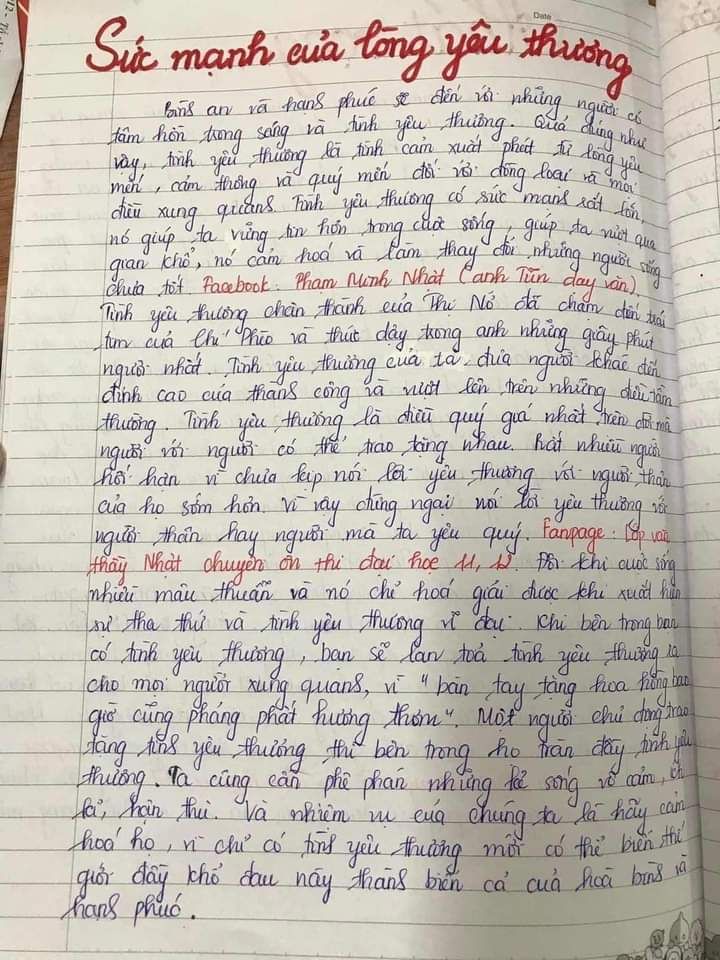 12 - Tổ
Date
Sức mạnh của lòng yêu thương
Bình an và hạnh phúc sẽ đến với những người có
tâm hồn trong sáng và tình yêu thương. Quả đúng như
vậy, tình yêu thương là tình cảm xuất phát từ lòng yêu
mến, cảm thông và quý mến đối với đồng loại và mọi
điều xung quanh. Tình yêu thương có sức mạnh rất lớn,
nó giúp ta vững tin hơn trong cuộc sống, giúp ta vượt qua
gian khổ, nó cảm hoá và làm thay đổi những người sống
chưa tốt. Facebook: Phạm Minh Nhật (anh Tũn dạy văn)
Tình yêu thương chân thành của Thị Nở đã chạm đến trái
tim của Chí Phèo và thức dậy trong anh những giây phút
người nhất. Tình yêu thương của ta đưa người khác đến
đỉnh cao của thành công và vượt lên trên những điều tầm
thường. Tình yêu thương là điều quý giá nhất trên đời mà
người với người có thể trao tặng nhau. Rất nhiều người
hối hận vì chưa kịp nói lời yêu thương với người thân
của họ sớm hơn. Vì vậy đừng ngại nói lời yêu thương với
người thân hay người mà ta yêu quý. Fanpage: Lớp văn
thầy Nhật chuyên ôn thi đại học 11, 12. Đôi khi cuộc sống
nhiều mâu thuẫn và nó chỉ hoá giải được khi xuất hiện
sự tha thứ và tình yêu thương vĩ đại. Khi bên trong bạn
có tình yêu thương, bạn sẽ lan toả tình yêu thương ra
cho mọi người xung quanh, vì "bàn tay tặng hoa hồng bao
giờ cũng phảng phất hương thơm". Một người chủ động trao
tặng tình yêu thương thì bên trong họ tràn đầy tình yêu
thương. Ta cũng cần phê phán những kẻ sống vô cảm, ích
kỉ, hận thù. Và nhiệm vụ của chúng ta là hãy cảm
hoá họ, vì chỉ có tình yêu thương mới có thể biến thế
giới đầy khổ đau này thành biển cả của hoà bình và
hạnh phúc.